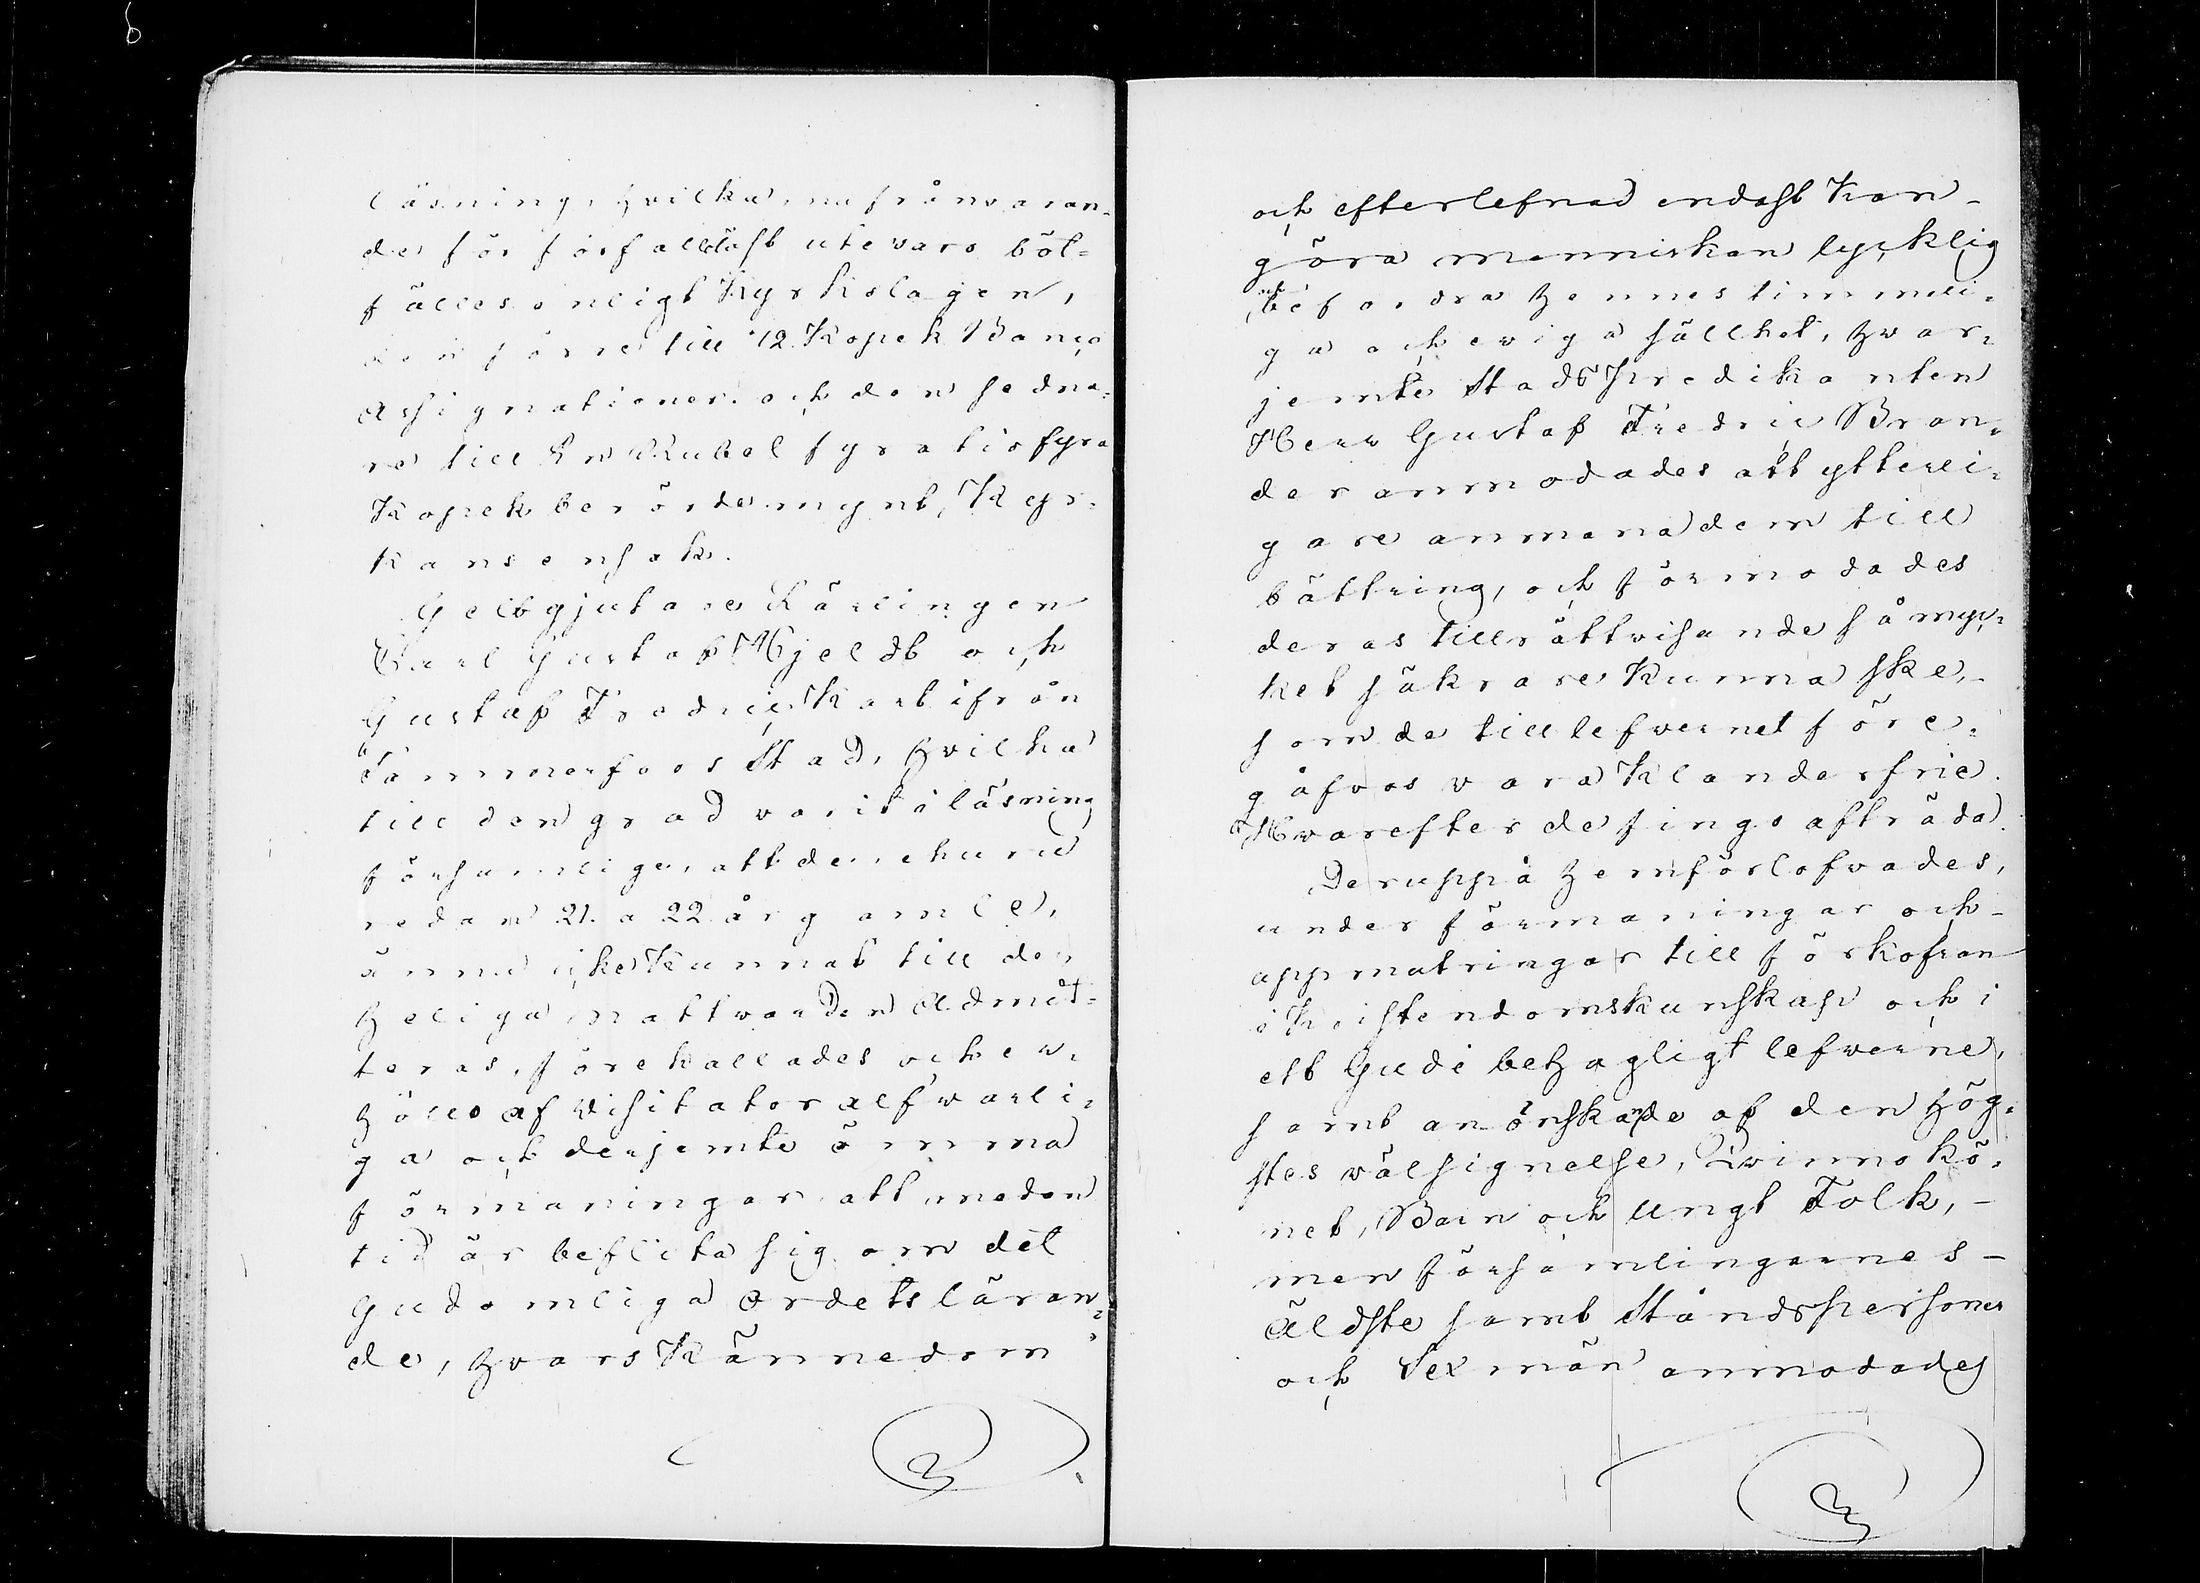 läsning, hvilka, nu frånvaran-
de, för förfallolöst utevaro böt=
fälles enligt Kyrkolagen,
den förre till 72 Kopek Banco
Assignationer och den sedna-
re till En Rubel fyratiofyra
Kopek berörde mynt, Kyr-
kans ensak.
Gelbgjutare Lärlingen
Carl Gustaf Hjeldt och
Gustaf Fredric Karl ifrån
Tammerfors Stad, hvilka
till den grad varit i läsning
försumlige, att de, ehuru
redan 21. a 22 år gamle,
ännu icke Kunnat till den
heliga nattvarden Admit=
teras,förekallades och er-
höllo af Visitator alfvarli-
ga och derjemte ömma
förmaningar att medan
tid är beflita sig om det
Gudomliga Ordets läran-
de, hvars Kännedom
och efterlefnad endast Kan
göra menniskan lycklig
och befordra hennes timmeli-
ga och eviga sällhet, hvar-
jemte Stads Predikanten
Herr Gustaf Fredric Bran-
der anmodades att ytterli-
gare anmana dem till
bättring, och förmodades
deras tillrättvisande så myc-
ket säkrare Kunna ske,
som de till lefvernet före-
gåfvos vara Klanderfrie.
Hvarefter de fingo afträda.
Deruppå hemförlofvades,
under förmaningar och
uppmuntringar till förkofran
i Kristendomskunskap och i
ett Gudi behagligt lefverne,
samt anönskande af den hög-
stes välsignelse, Qvinnokö-
net, Barn och Ungt Folk, -
men församlingarnes -
Äldste samt Ståndspersoner
och Sexmän anmodades